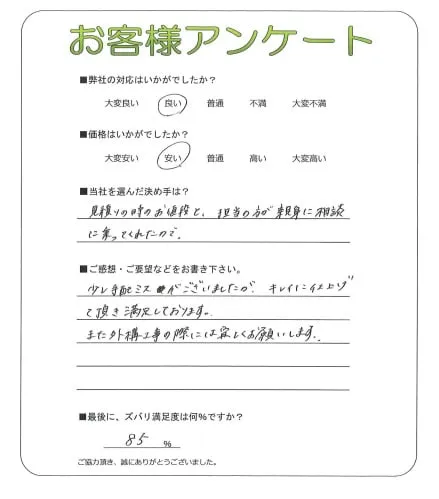 お客様アンケート
■弊社の対応はいかがでしたか?
大変良い 良い 普通 不満 大変不満
■価格はいかがでしたか?
大変安い 安い 普通 高い 大変高い
■当社を選んだ決め手は?
見積りの時のお値段と、担当の方が親身に相談
に乗ってくれたので。
■ご感想・ご要望などをお書き下さい。
少し手配ミスがございましたが、キレイに仕上げ
て頂き満足しております。
また外構工事の際には宜しくお願いします。
■最後に、ズバリ満足度は何%ですか?
85 %
ご協力頂き、誠にありがとうございました。